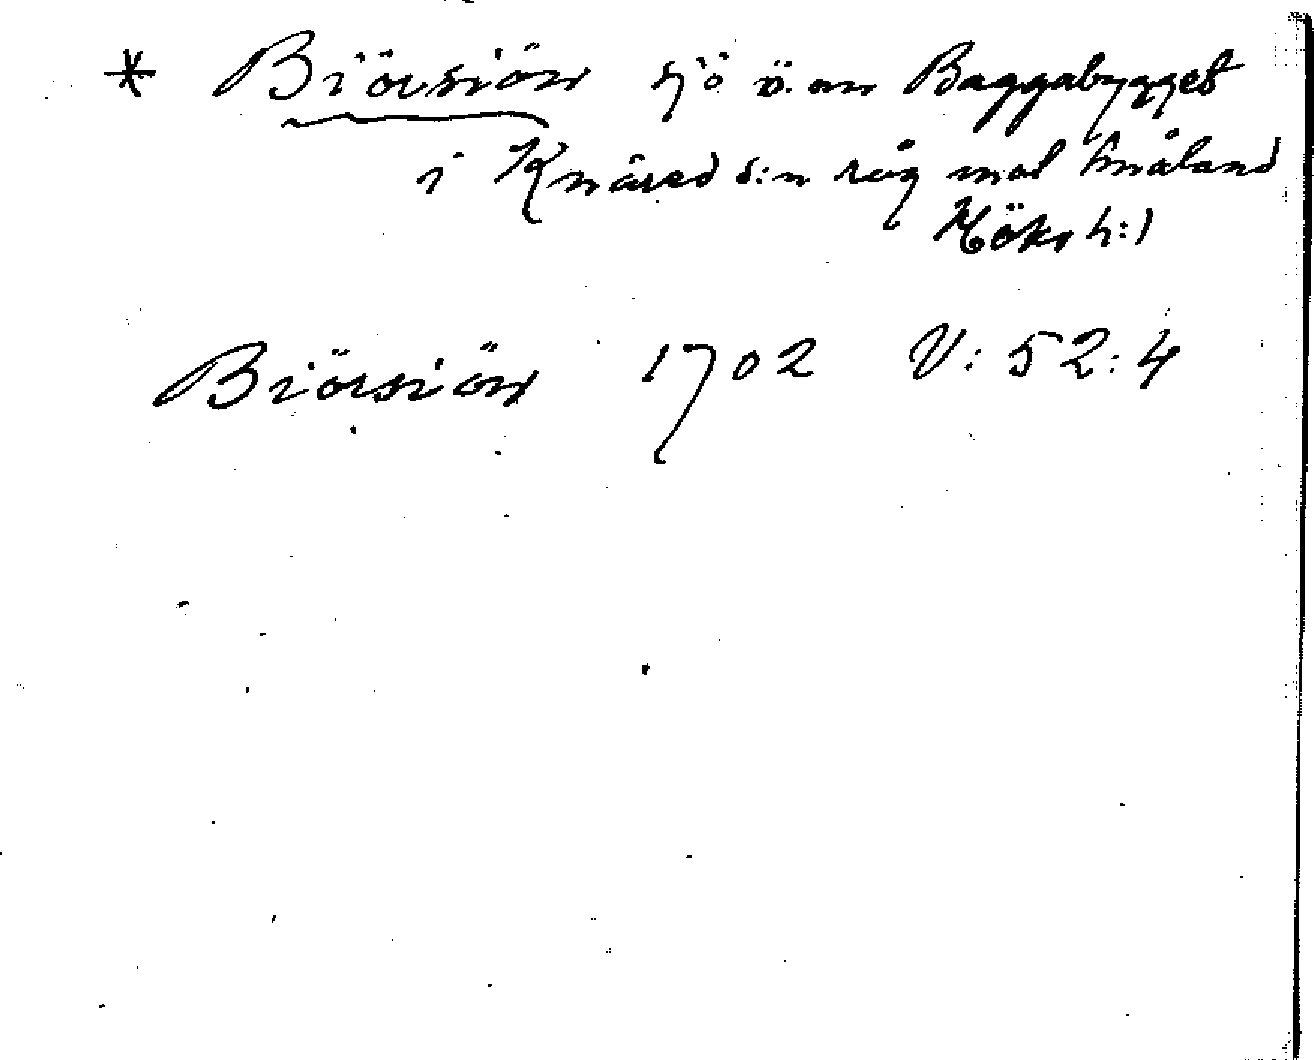 * Biörsiön sjö ö. om Baggabygget
i Knäred s:n råg mot Småland
Höks h:)
Biörsiön 1702 V: 52:4